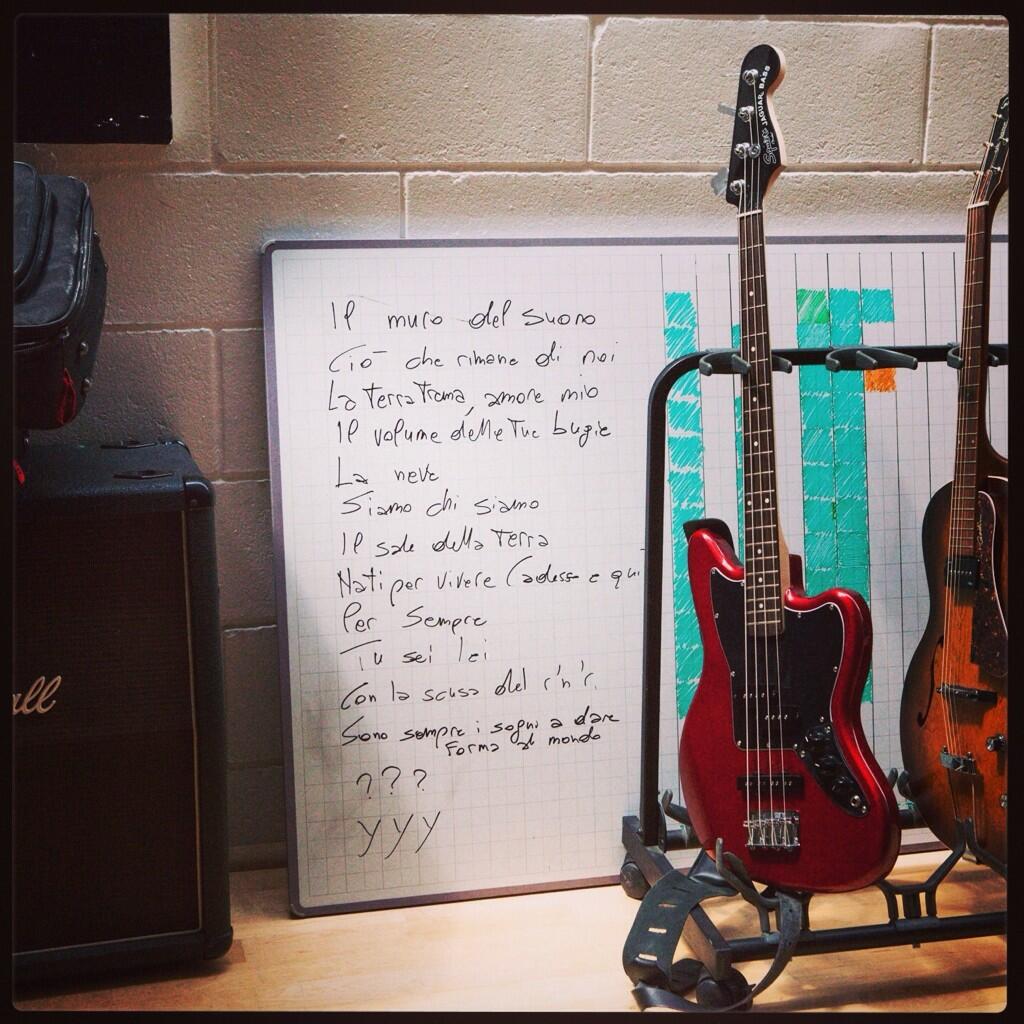 Squier JAGUAR BASS
Il muro del suono
Ciò che rimane di noi
La terra trema, amore mio
Il volume delle Tue bugie
La neve
Siamo chi siamo
Il sale della Terra
Nati per vivere (adesso e qui
Per Sempre
Tu sei lei
Con la scusa del r'n'r.
Sono sempre i sogni a dare
forma al mondo
???
yyy
all